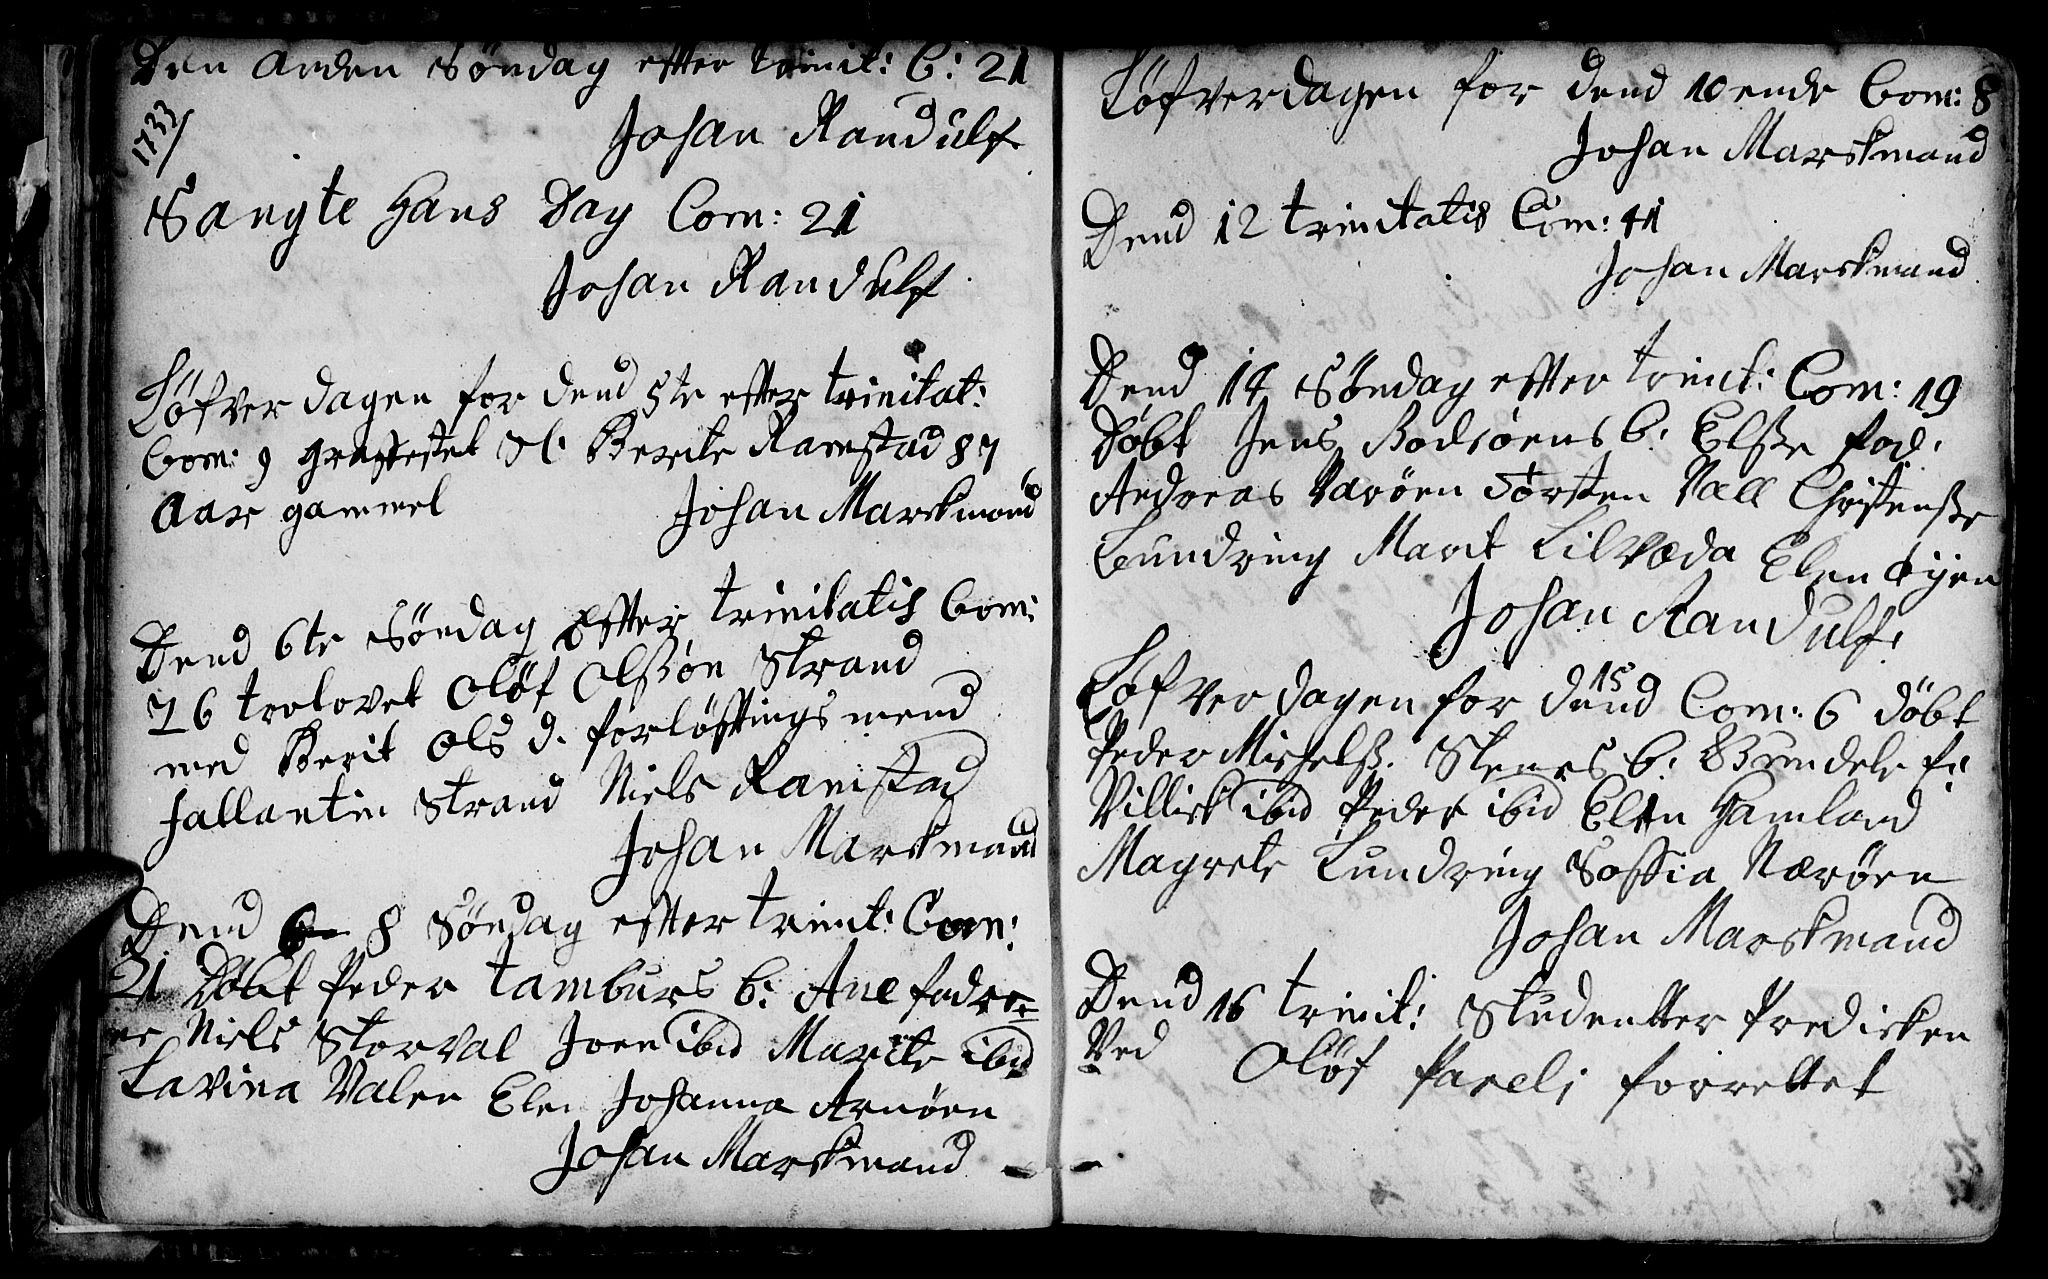 Den anden Søndag efter trinit: C: 21
1733/
Johan Randulf
Sangte Hans Day Com: 21
Johan Randulf
Løfverdagen for dend 5te efter trinitat:
Com: 9 grafestet Sl. Berete Ramstad 87
aar gammel Johan Markmand
Dend 6te Søndag Efter trinitatis Com:
26 trolovet Oløf Olssøn Strand
med Berit Ols d. forløftings mend
Hallantin Strand Niels Ramstad
Johan Markmand
Dend 8 Søndag efter trinit: Com:
21 Døbt Peder tamburs b: Ane fadre=
re Niels Storval Joen ibid Marite ibid
Lavina Valen Elen Johanna Arnøen
Johan Markmand
Løfverdagen for dend 10ende Com: 8
Johan Marskmand
Dend 12 trinitatis Com: 41
Johan Markmand
Dend 14 Søndag efter trinit: Com: 19
Døbt Jens Bodsøens b: Elsse fad:
Andreas Narøen Torsten Vall Christensse
Lundring Marit Lilvæda Elen Øyen
Johan Randulf
Løfverdagen for dend 15 Com: 6 døbt
Peder Michelss. Stenes b: Gundele f:
Villick ibid Peder ibid Elen Hamland
Magrete Lundring Soffia Nærøen
Johan Markmand
Dend 16 trinit: Studentter Predicken
Ved Oløf Pareli forrettet